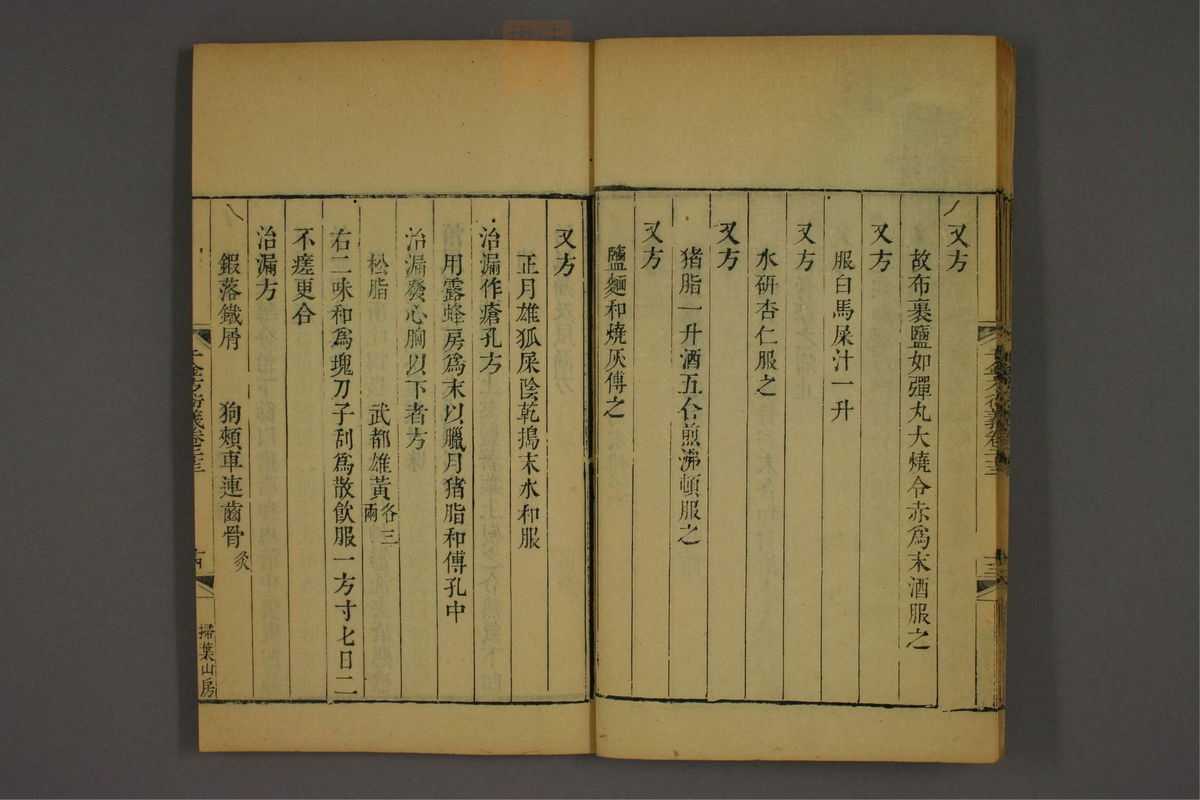 又方
故布裹鹽如彈丸大燒令赤爲末酒服之
又方
服白馬屎汁一升
又方
水研杏仁服之
又方
猪脂一升酒五合煎沸頓服之
又方
鹽麵和燒灰傅之
又方
正月雄狐屎陰乾搗末水和服
治漏作瘡孔方
用露蜂房爲末以臘月猪脂和傅孔中
治漏發心胸以下者方
松脂 武都雄黃各三兩
右二味和爲塊刀子刮爲散飲服一方寸七日二
不瘥更合
治漏方
鍜落鐵屑 狗頰車連齒骨炙
千金方衍義卷二十三
十四
掃葉山房